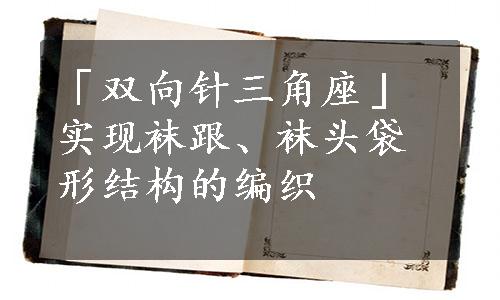 「双向针三角座」
实现袜跟、袜头袋
形结构的编织